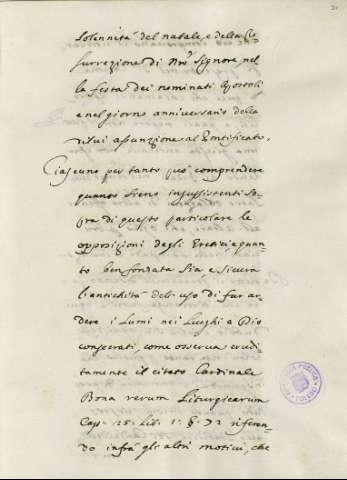 solennità del natale, e della Re
surrezione di Nro Signore, nel
la festa dei nominati Apostoli
e nel giorno anniversario della
di lui assunzione al Pontificato.
Ciascuno per tanto può comprendere
quanto sieno insussistenti so
pra di questo particolare le
opposizioni degli Eretici, e quan
to ben fondata sia, e sicura
l'antichità dell'uso di far ar
dere i Lumi nei Luoghi a Dio
consecrati, come osserva erudi
tamente il citato Cardinale
Bona rerum Liturgicarum
Cap. 25. Lib. 1. §. 72 riferen
do infra gli altri motivi, che